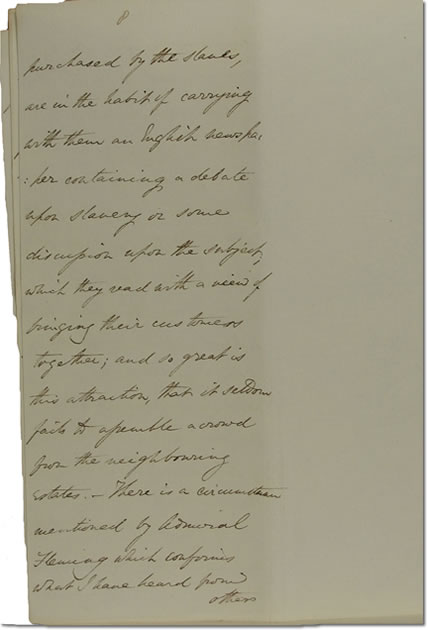 8
purchased by the slaves,
are in the habit of carrying
with them an English newspa
:per containing a debate
upon slavery or some
discussion upon the subject,
which they read with a view of
bringing their customers
together; and so great is
this attraction, that it seldom
fails to assemble a crowd
from the neighbouring
estates. – There is a circumstance
mentioned by Admiral
Fleming which confirms
what I have heard from
others